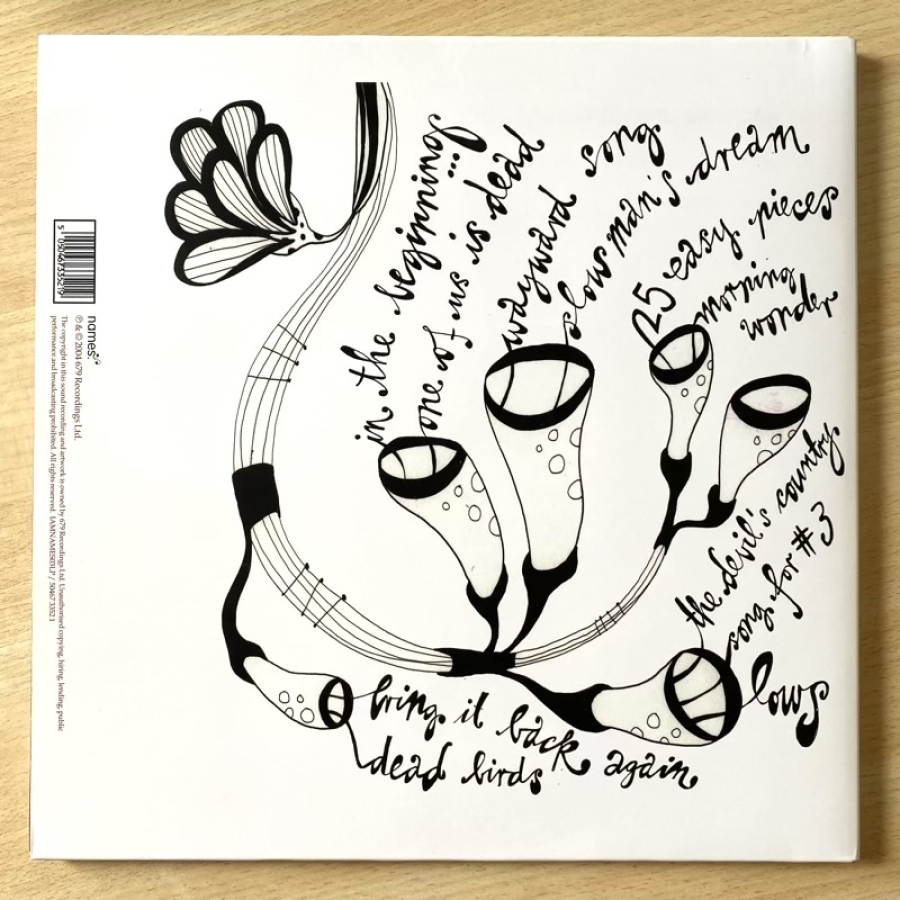 in the beginning...
one of us is dead
wayward song
slow man's dream
25 easy pieces
morning
wonder
the devil's country
song for #3
lows
bring it back again
dead birds
5 050467335219
names.
℗ & © 2004 679 Recordings Ltd.
The copyright in this sound recording and artwork is owned by 679 Recordings Ltd. Unauthorised copying, hiring, lending, public
performance and broadcasting prohibited. All rights reserved. IAMNAMES03LP / 50467 3352 1